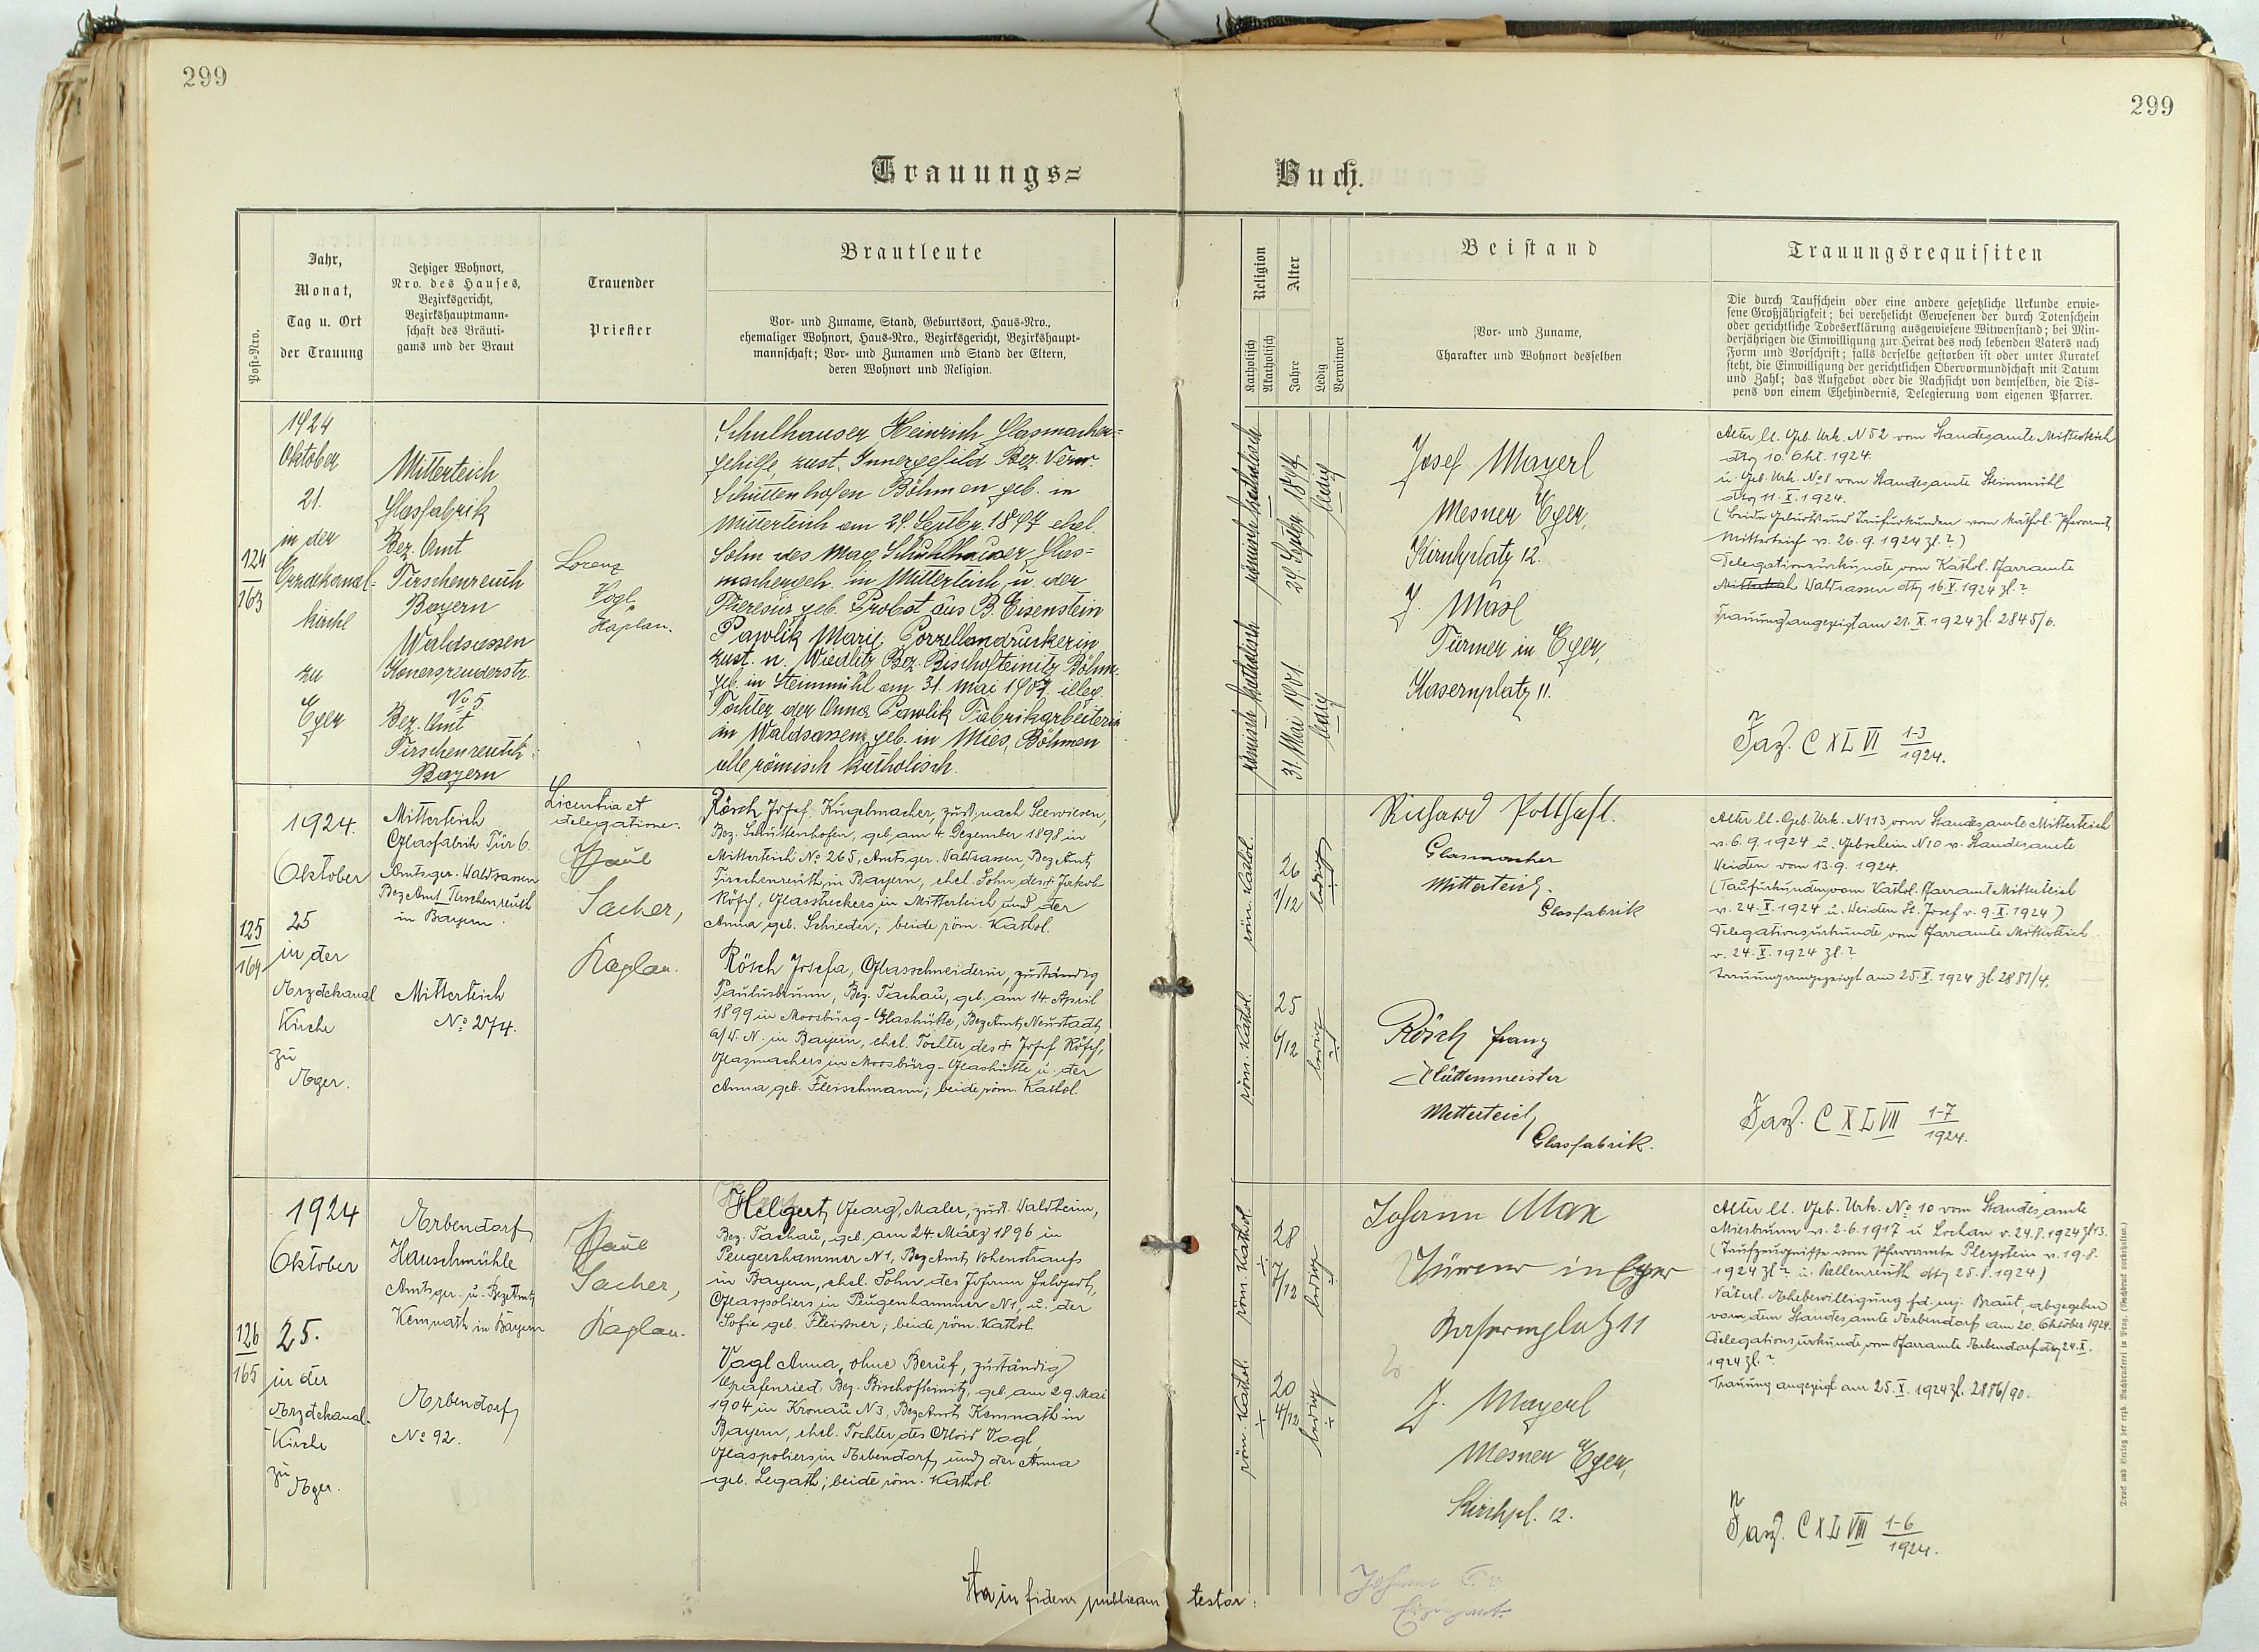 299
299
Trauungs=
Buch.
Post-Nro.
Jahr,
Monat,
Tag u. Ort
der Trauung
Jetziger Wohnort,
Nro. des Hauses,
Bezirksgericht,
Bezirkshauptmann-
schaft des Bräuti-
gams und der Braut
Trauender
Priester
Brautleute
Vor- und Zuname, Stand, Geburtsort, Haus-Nro.,
ehemaliger Wohnort, Haus-Nro., Bezirksgericht, Bezirkshaupt-
mannschaft; Vor- und Zunamen und Stand der Eltern,
deren Wohnort und Religion.
Religion
Katholisch
Akatholisch
Alter
Jahre
Ledig
Verwitwet
Beistand
Vor- und Zuname,
Charakter und Wohnort desselben
Trauungsrequisiten
Die durch Taufschein oder eine andere gesetzliche Urkunde erwie-
sene Großjährigkeit; bei verehelicht Gewesenen der durch Totenschein
oder gerichtliche Todeserklärung ausgewiesene Witwenstand; bei Min-
derjährigen die Einwilligung zur Heirat des noch lebenden Vaters nach
Form und Vorschrift; falls derselbe gestorben ist oder unter Kuratel
steht, die Einwilligung der gerichtlichen Obervormundschaft mit Datum
und Zahl; das Aufgebot oder die Nachsicht von demselben, die Dis-
pens von einem Ehehindernis, Delegierung vom eigenen Pfarrer.
124
163
1924
Oktober
21.
in der
Erzdekanal=
kirche
zu
Eger
Mitterteich
Glasfabrik
Bez. Amt
Tirschenreuth
Bayern
Waldsassen
No 5
Bez. Amt
Tirschenreuth
Bayern
Lorenz
Vogl
Kaplan.
Schulhauser Heinrich Glasmacher=
gehilfe, zust. Innergefild Bez. Verw.
Schüttenhofen Böhmen geb. in
Mitterteich am 29. Septbr. 1897 ehel.
Sohn des Max Schuhlhauser, Glas=
machergeh. in Mitterteich u. der
Theresia geb. Probst aus B. Eisenstein
Pawlik Marie Porzellandruckerin
zust. n. Wiedlitz Bez. Bischofteinitz Böhm.
geb. in Steinmühl am 31. Mai 1901. illeg.
Tochter der Anna Pawlik Fabrikarbeiterin
in Waldsassen, geb. in Mies, Böhmen
alle römisch katholisch.
römisch katholisch
29. Septbr. 1897
ledig
römisch katholisch
31. Mai 1901
ledig
Josef Mayerl
Mesner Eger,
Kirchplatz 12.
J. Maxl
Türmer in Eger,
Kasernplatz 11.
Alter lt. Geb. Urk. N 52 vom Standesamte Mitterteich
dto 10. Okt. 1924.
u. Geb. Urk. No 8 vom Standesamte Steinmühl
dto 11. X. 1924.
(beide Geburts und Taufurkunden vom kathol. Pfarramt
Mitterteich v. 26.9.1924 Zl.?)
Delegationsurkunde vom Kathol. Pfarramte
Mitterteich Waldsassen dto 16. X. 1924 Zl.?
Trauung angezeigt am 21. X. 1924 Zl. 2845/6.
Fasz. C X L VI 1-3
1924.
125
164
1924.
Oktober
25
in der
Erzdekanal
Kirche
zu
Eger.
Mitterteich
Glasfabrik Tür 6.
Amtsger. Waldsassen
Bez Amt Tirschenreuth
in Bayern.
Mitterteich
No 274.
Licentia et
delegatione.
Paul
Sacher,
Kaplan.
Rösch Josef, Kugelmacher, zust. nach Seewiesen,
Bez. Schüttenhofen, geb. am 4. Dezember 1898 in
Mitterteich No 265, Amtsger. Waldsassen Bez Amt,
Tirschenreuth in Bayern, ehel. Sohn des + Jakob
Rösch, Glasstreckers in Mitterteich und der
Anna geb. Schieder; beide röm. Kathol.
Rösch Josefa, Glasschneiderin, zuständig
Paulusbrunn, Bez. Tachau, geb. am 14. April
1899 in Moosbürg-Glashütte, Bez Amt, Neustadt
a/W. N. in Bayern, ehel. Tochter des + Josef Rösch,
Glasmachers in Moosbürg-Glashütte u. der
Anna geb. Fleischmann; beide röm. Kathol.
röm. Kathol.
26
1/12
ledig
röm. Kathol.
25
6/12
ledig
Richard Potthast.
Glasmacher
Mitterteich.
Glasfabrik
Rösch Franz
Hüttenmeister
Mitterteich,
Glasfabrik.
Alter lt. Geb. Urk. N 113 vom Standesamte Mitterteich
v. 6.9.1924 u. Gebschein N 10 v. Standesamte
Weiden vom 13.9.1924.
(Taufurkunden vom Kathol. Pfarramt Mitterteich
v. 24. X. 1924 u. Weiden St. Josef v. 9. X. 1924)
Delegationsurkunde vom Pfarramte Mitterteich
v. 24. X. 1924 Zl.?
Trauung angezeigt am 25. X. 1924 Zl. 2881/4.
Fasz. C X L VII 1-7
1924.
126
165
1924
Oktober
25.
in der
Erzdekanal-
Kirche
zu
Eger.
Erbendorf
Hauschmühle
Amtsger. u. Bez Amt
Kemnath in Bayern
Erbendorf
No 92.
Paul
Sacher,
Kaplan.
Helgert Georg, Maler, zust. Waldheim,
Bez. Tachau, geb. am 24. März 1896 in
Peugenhammer N 1, Bez Amt, Vohenstrauß
in Bayern, ehel. Sohn des Johann Helgert,
Glaspoliers in Peugenhammer N 1, u. der
Sofie geb. Fleissner; beide röm. Kathol.
Vogl Anna, ohne Beruf, zuständig
Grafenried, Bez. Bischofteinitz, geb. am 29. Mai
1904 in Kronau N 3, Bez Amt Kemnath in
Bayern, ehel. Tochter des Alois Vogl,
Glaspoliers in Erbendorf, und der Anna
geb. Legath; beide röm. Kathol.
röm. Kathol.
28
7/12
ledig
röm. Kathol.
20
4/12
ledig
Johann Max
Türmer in Eger
Kasernplatz 11
J. Mayerl
Mesner Eger,
Kirchpl. 12.
Alter lt. Geb. Urk. No 10 vom Standesamte
Miesbrunn v. 2.6.1917 u Lochau v. 24.8.1924 Zl 13.
(Taufzeugnisse vom Pfarramte Pleystein v. 19.8.
1924 Zl? u. Pullenreuth dto 25.8.1924)
Väterl. Ehebewilligung f.d. mj. Braut, abgegeben
vom dem Standesamte Erbendorf am 20. Oktober 1924.
Delegationsurkunde vom Pfarramte Erbendorf dto 24. X.
1924 Zl.?
Trauung angezeigt am 25. X. 1924 Zl. 2886/90.
Fasz. C X L VIII 1-6
1924.
Ita in fidem publicam testor:
Druck und Verlag der erzb. Buchdruckerei in Prag. (Nachdruck vorbehalten.)